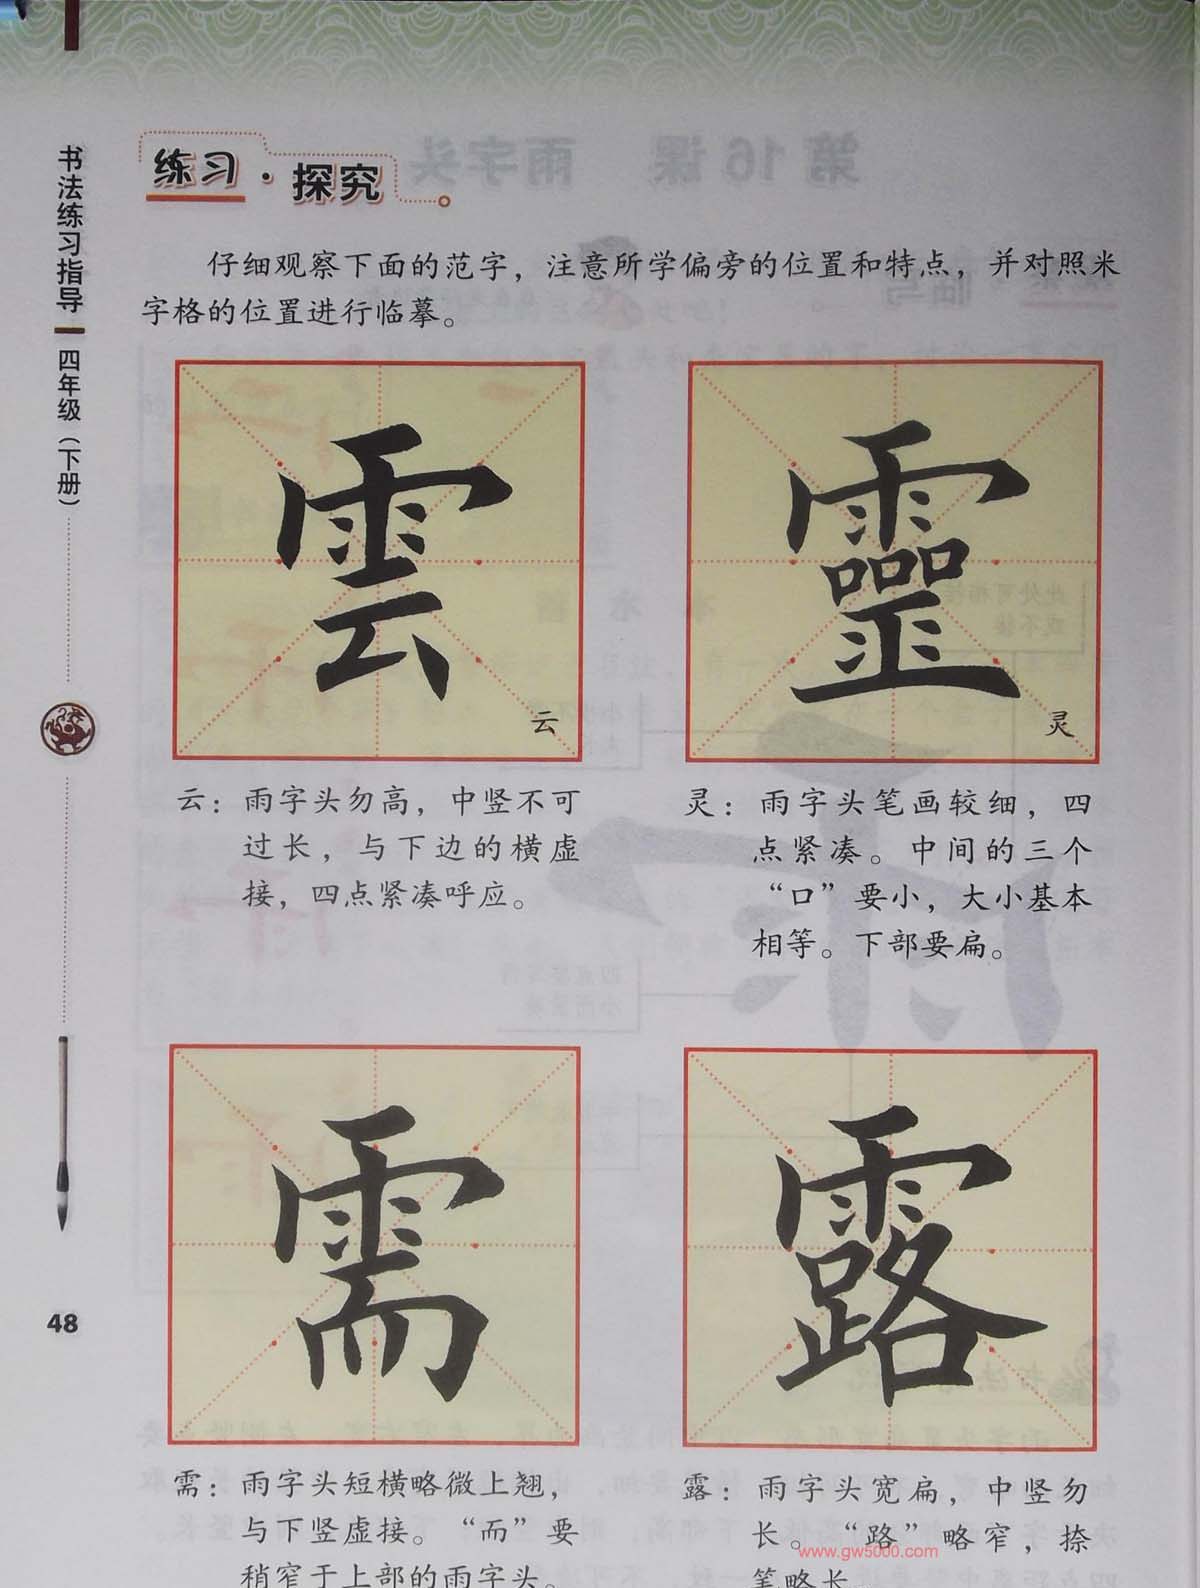 书法练习指导
四年级（下册）
48
练习·探究
仔细观察下面的范字，注意所学偏旁的位置和特点，并对照米
字格的位置进行临摹。
雲
云
靈
灵
云：雨字头勿高，中竖不可
过长，与下边的横虚
接，四点紧凑呼应。
灵：雨字头笔画较细，四
点紧凑。中间的三个
“口”要小，大小基本
相等。下部要扁。
需
露
需：雨字头短横略微上翘，
与下竖虚接。“而”要
稍窄于上部的雨字头。
露：雨字头宽扁，中竖勿
长。“路”略窄，捺
笔略长。
www.gw5000.com